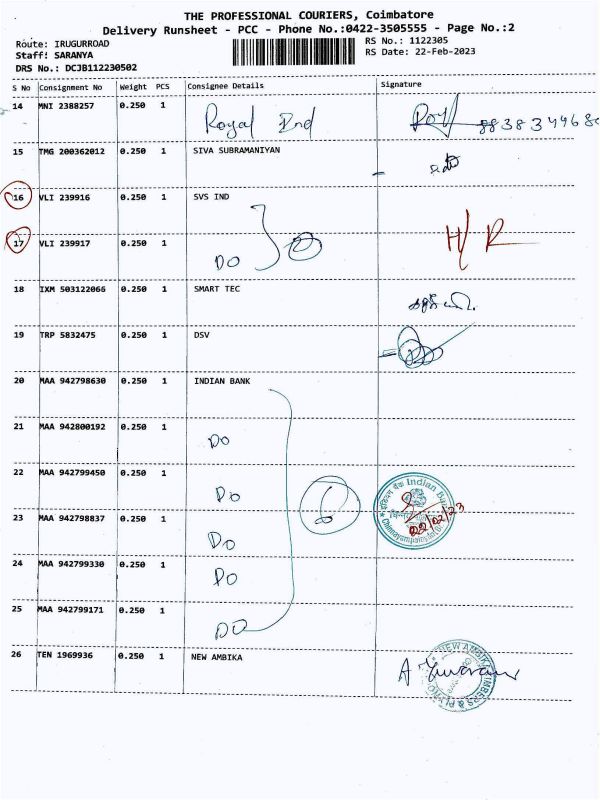 THE PROFESSIONAL COURIERS, Coimbatore
Delivery Runsheet - PCC - Phone No.:0422-3505555 - Page No.:2
Route: IRUGURROAD
Staff: SARANYA
DRS No.: DCJB112230502
RS No.: 1122305
RS Date: 22-Feb-2023
S No Consignment No Weight PCS Consignee Details Signature
14 MNI 2388257 0.250 1 Royal Ind Roy 8838344680
15 TMG 200362012 0.250 1 SIVA SUBRAMANIYAN
16 VLI 239916 0.250 1 SVS IND
17 VLI 239917 0.250 1 DO 2 H/R
18 IXM 503122066 0.250 1 SMART TEC
19 TRP 5832475 0.250 1 DSV
20 MAA 942798630 0.250 1 INDIAN BANK
21 MAA 942800192 0.250 1 DO
22 MAA 942799450 0.250 1 DO 6 Indian Bank
23 MAA 942798837 0.250 1 DO 22/02/23
24 MAA 942799330 0.250 1 DO
25 MAA 942799171 0.250 1 DO
26 TEN 1969936 0.250 1 NEW AMBIKA NEW AMBIKA TIMBERS &